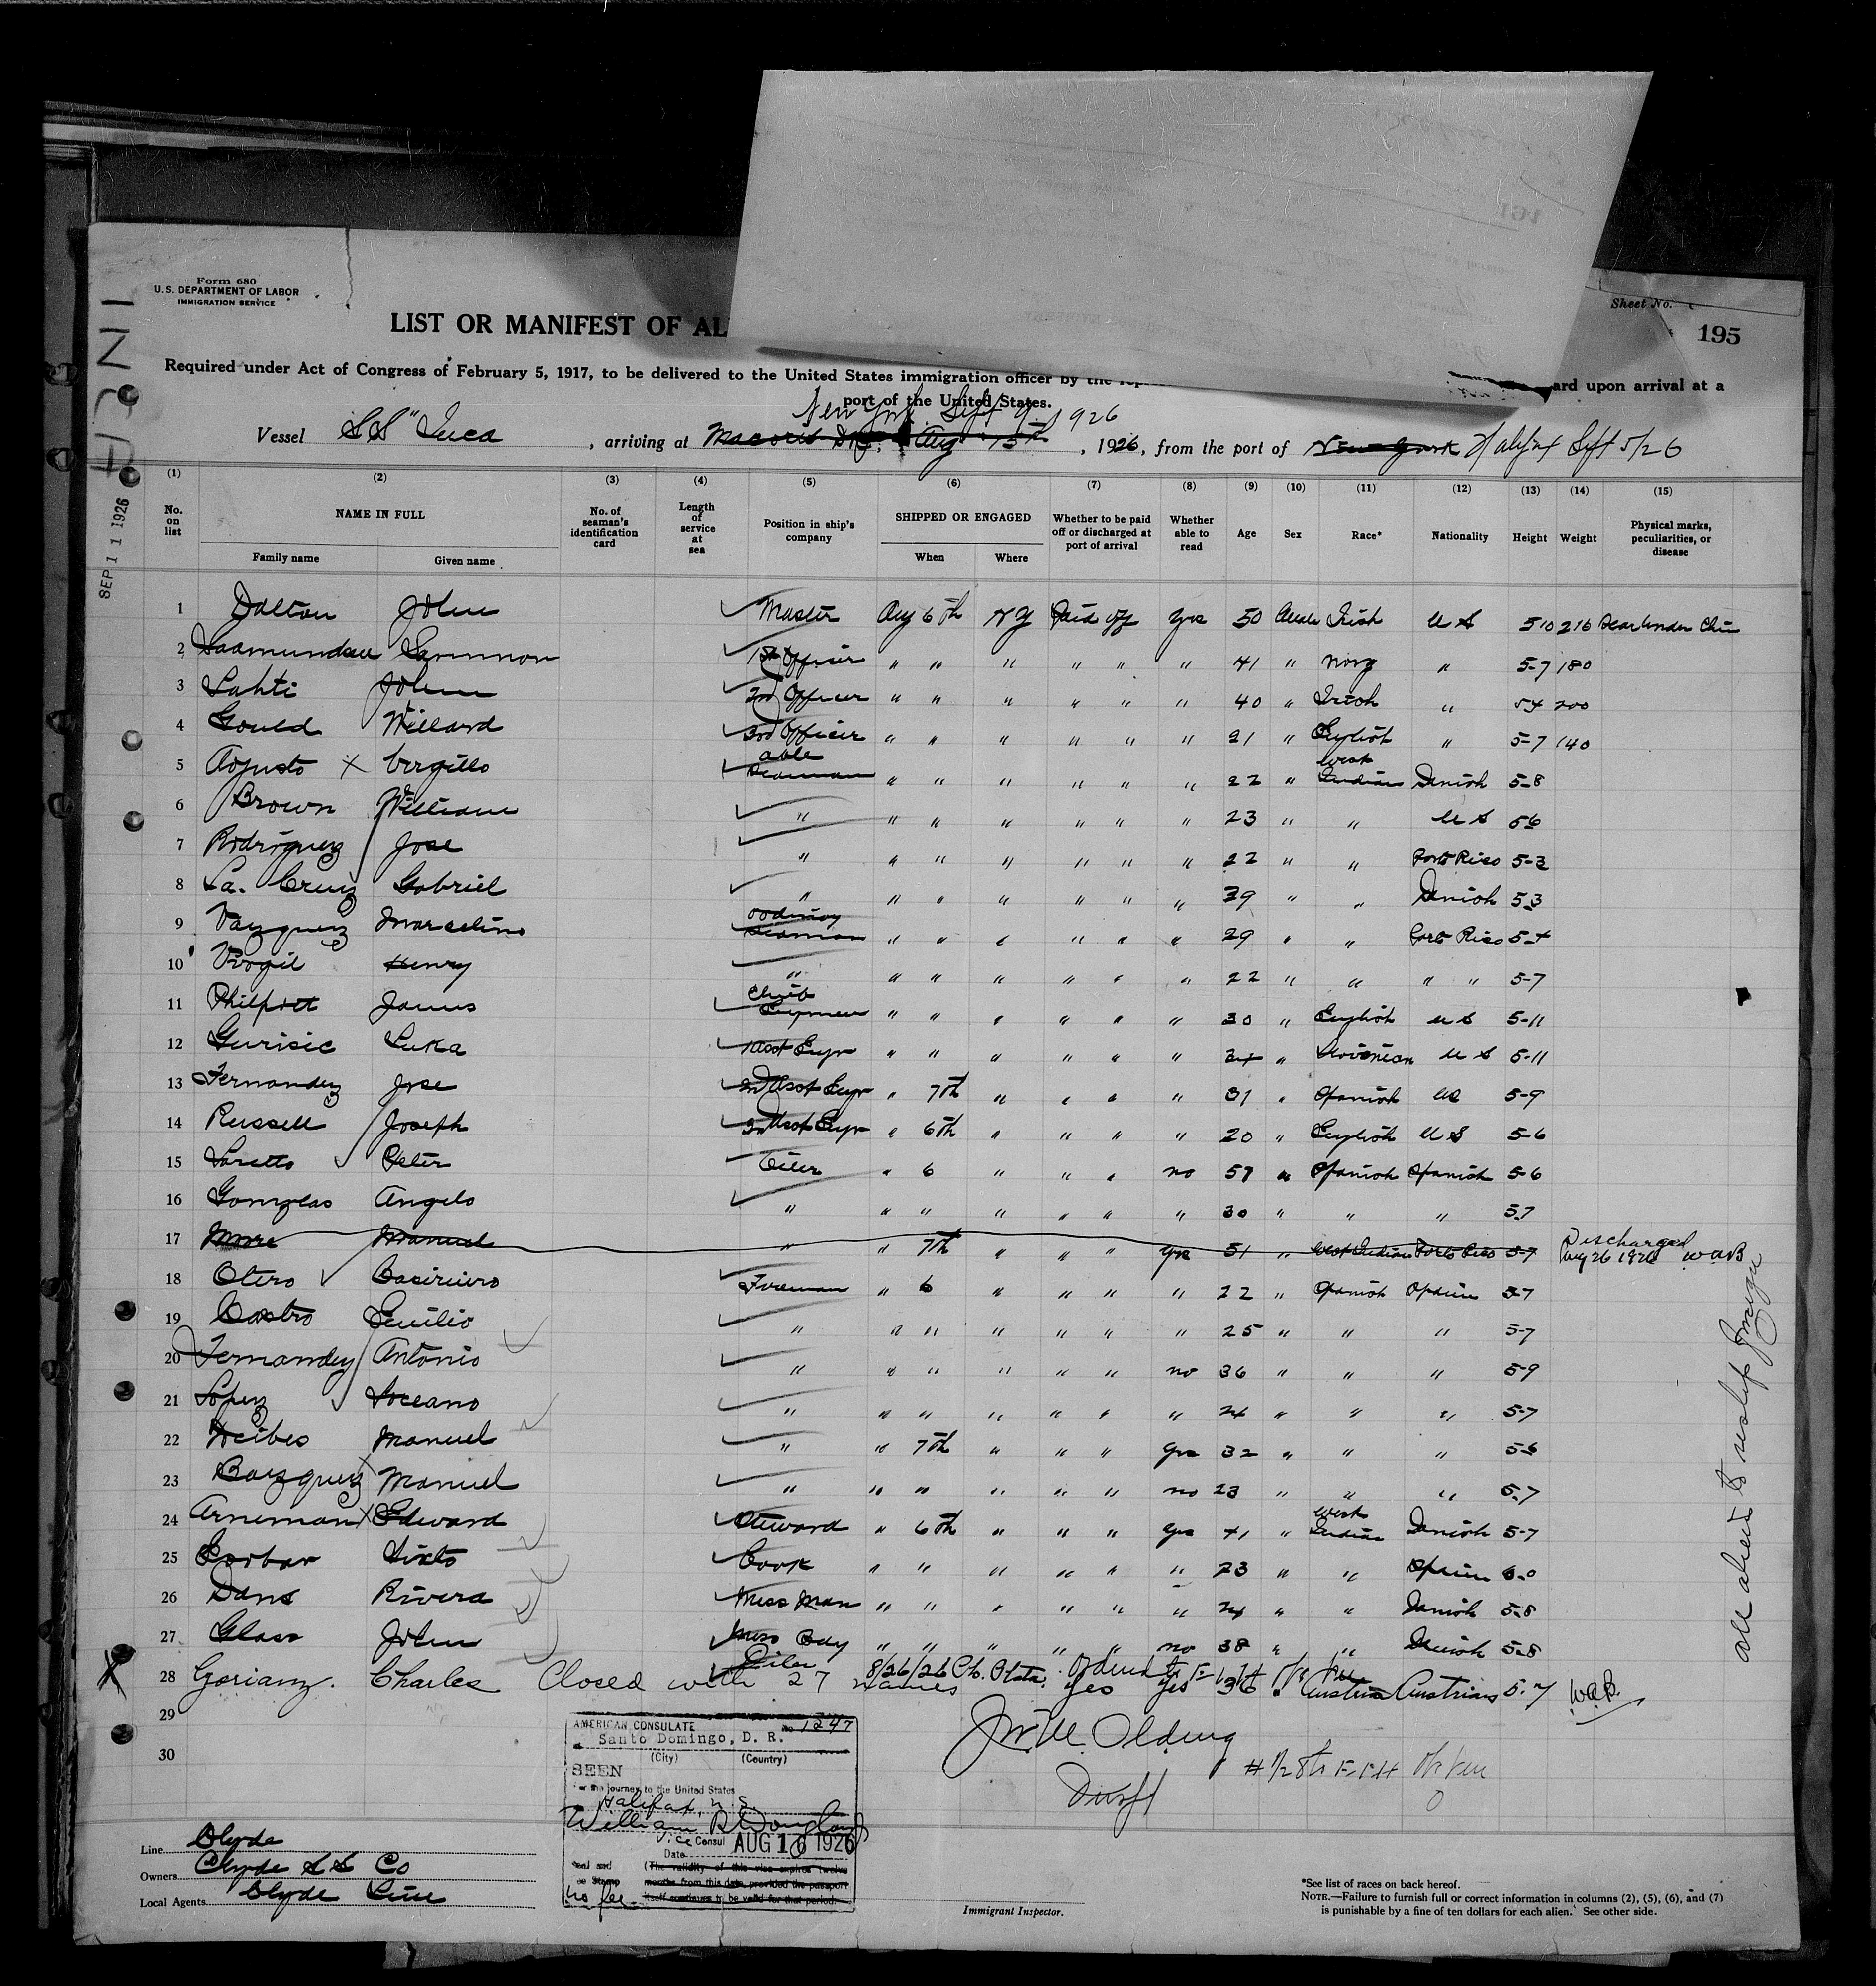 Form 680
U.S. DEPARTMENT OF LABOR
IMMIGRATION SERVICE
Sheet No.
195
LIST OR MANIFEST OF AL
Required under Act of Congress of February 5, 1917, to be delivered to the United States immigration officer by the repr ard upon arrival at a
port of the United States.
New York Sept 9. 1926
Vessel SS "Inca , arriving at Macoris D.R. Aug 15th, 1926, from the port of New York Halifax Sept 5/26
SEP 11 1926
(1) (2) (3) (4) (5) (6) (7) (8) (9) (10) (11) (12) (13) (14) (15)
No. on list NAME IN FULL No. of seaman's identification card Length of service at sea Position in ship's company SHIPPED OR ENGAGED Whether to be paid off or discharged at port of arrival Whether able to read Age Sex Race* Nationality Height Weight Physical marks, peculiarities, or disease
Family name Given name When Where
1 Dalton John Master Aug 6th NY Paid off yes 50 Male Irish U S 510 216 Scar Under Chin
2 1st Officer " " " " " " 41 " Norg " 5-7 180
3 Lahti John 2nd Officer " " " " " " 40 " Irish " 54 200
4 Gould Willard 3rd Officer " " " " " " 21 " English " 5-7 140
5 Agusto X Virgillo able Seaman " " " " " " 22 " West Indian Danish 5-8
6 Brown William " " " " " " " 23 " " U S 56
7 Rodriguez Jose " " " " " " " 22 " " Porto Rico 5-3
8 La. Cruz Gabriel " " " " " " " 39 " " Danish 53
9 Vazquez Marcelino ordinary Seaman " " " " " " 29 " " Porto Rico 5-4
10 Virgil Henry " " " " " " " 22 " " " " 5-7
11 Philpott James Chief Engineer " " " " " " 30 " English U S 5-11
12 Gurisic Luka 1 Asst Engr " " " " " " 34 " Slovenian U S 5-11
13 Fernandez Jose 2nd Asst Engr " 7th " " " " 31 " Spanish US 5-9
14 Russell Joseph 3rd Asst Engr " 6th " " " " 20 " English U S 5-6
15 Loretto Peter Oiler " 6 " " " no 57 " Spanish Spanish 5-6
16 Gonzleas Angelo " " " " " " " 30 " " " 5.7
17 Manuel " " 7th " " " yes 51 " West Indian Porto Rico 5-7 Discharged Aug 26 1926 WAB
18 Otero Casimiro Fireman " 6 " " " " 22 " Spanish Spain 5-7
19 Castro Emilio " " " " " " " 25 " " " 5-7
20 Fernandez Antonio " " " " " " no 36 " " " 5-9
21 Lopez " " " " " " " 24 " " " 5-7
22 Manuel " " 7th " " " yes 32 " " " 5-6
23 Bazquez Manuel " " " " " " no 23 " " " 5.7
24 Arneman X Edward Steward " 6th " " " yes 41 " West Indian Danish 5-7
25 Escobar Sixto Cook " " " " " " 23 " " Spain 6-0
26 Dans Rivera Mess Man " " " " " " 24 " " Danish 5-8
27 Glass John Mess Boy " " " " " no 38 " " Danish 5-8
X 28 Gorianz. Charles Oiler 8/26/26 yes yes 36 Austria Austrians 5.7 W.A.B.
Closed with 27 names
29
30
All aliens to reship foreign
AMERICAN CONSULATE No 1247
at Santo Domingo, D. R.
(City) (Country)
SEEN
For the journey to the United States
Halifax, N.S.
William B Douglass
Vice Consul
Date AUG 16 1926
Seal and
Fee Stamp
(The validity of this visa expires twelve
months from this date, provided the passport
itself continues to be valid for that period.
No fee
Line Clyde
Owners Clyde S S Co
Local Agents Clyde Line
Immigrant Inspector.
*See list of races on back hereof.
NOTE.—Failure to furnish full or correct information in columns (2), (5), (6), and (7)
is punishable by a fine of ten dollars for each alien. See other side.